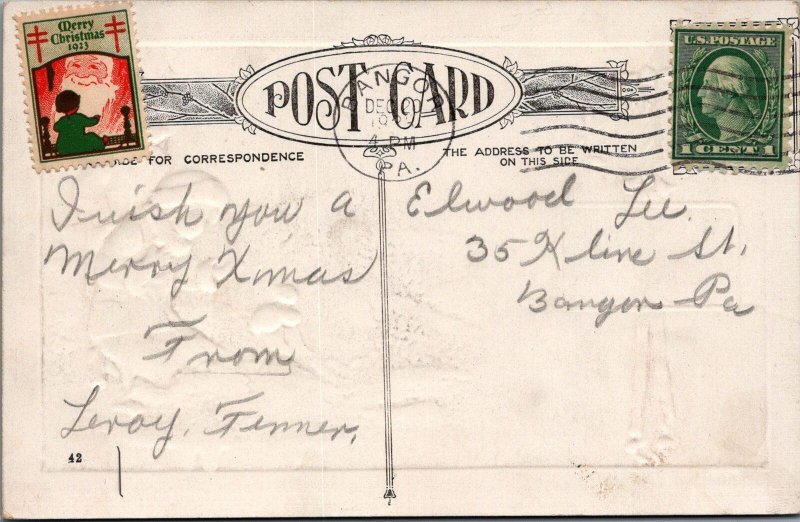 Merry
Christmas
1923
POST CARD
BANGOR
DEC 20
4 PM
PA.
U.S. POSTAGE
1 CENT 1
FOR CORRESPONDENCE
THE ADDRESS TO BE WRITTEN
ON THIS SIDE
I wish you a
Merry Xmas
From
Leroy. Fenner.
42
Elwood Lee.
35 Kline St.
Bangor Pa